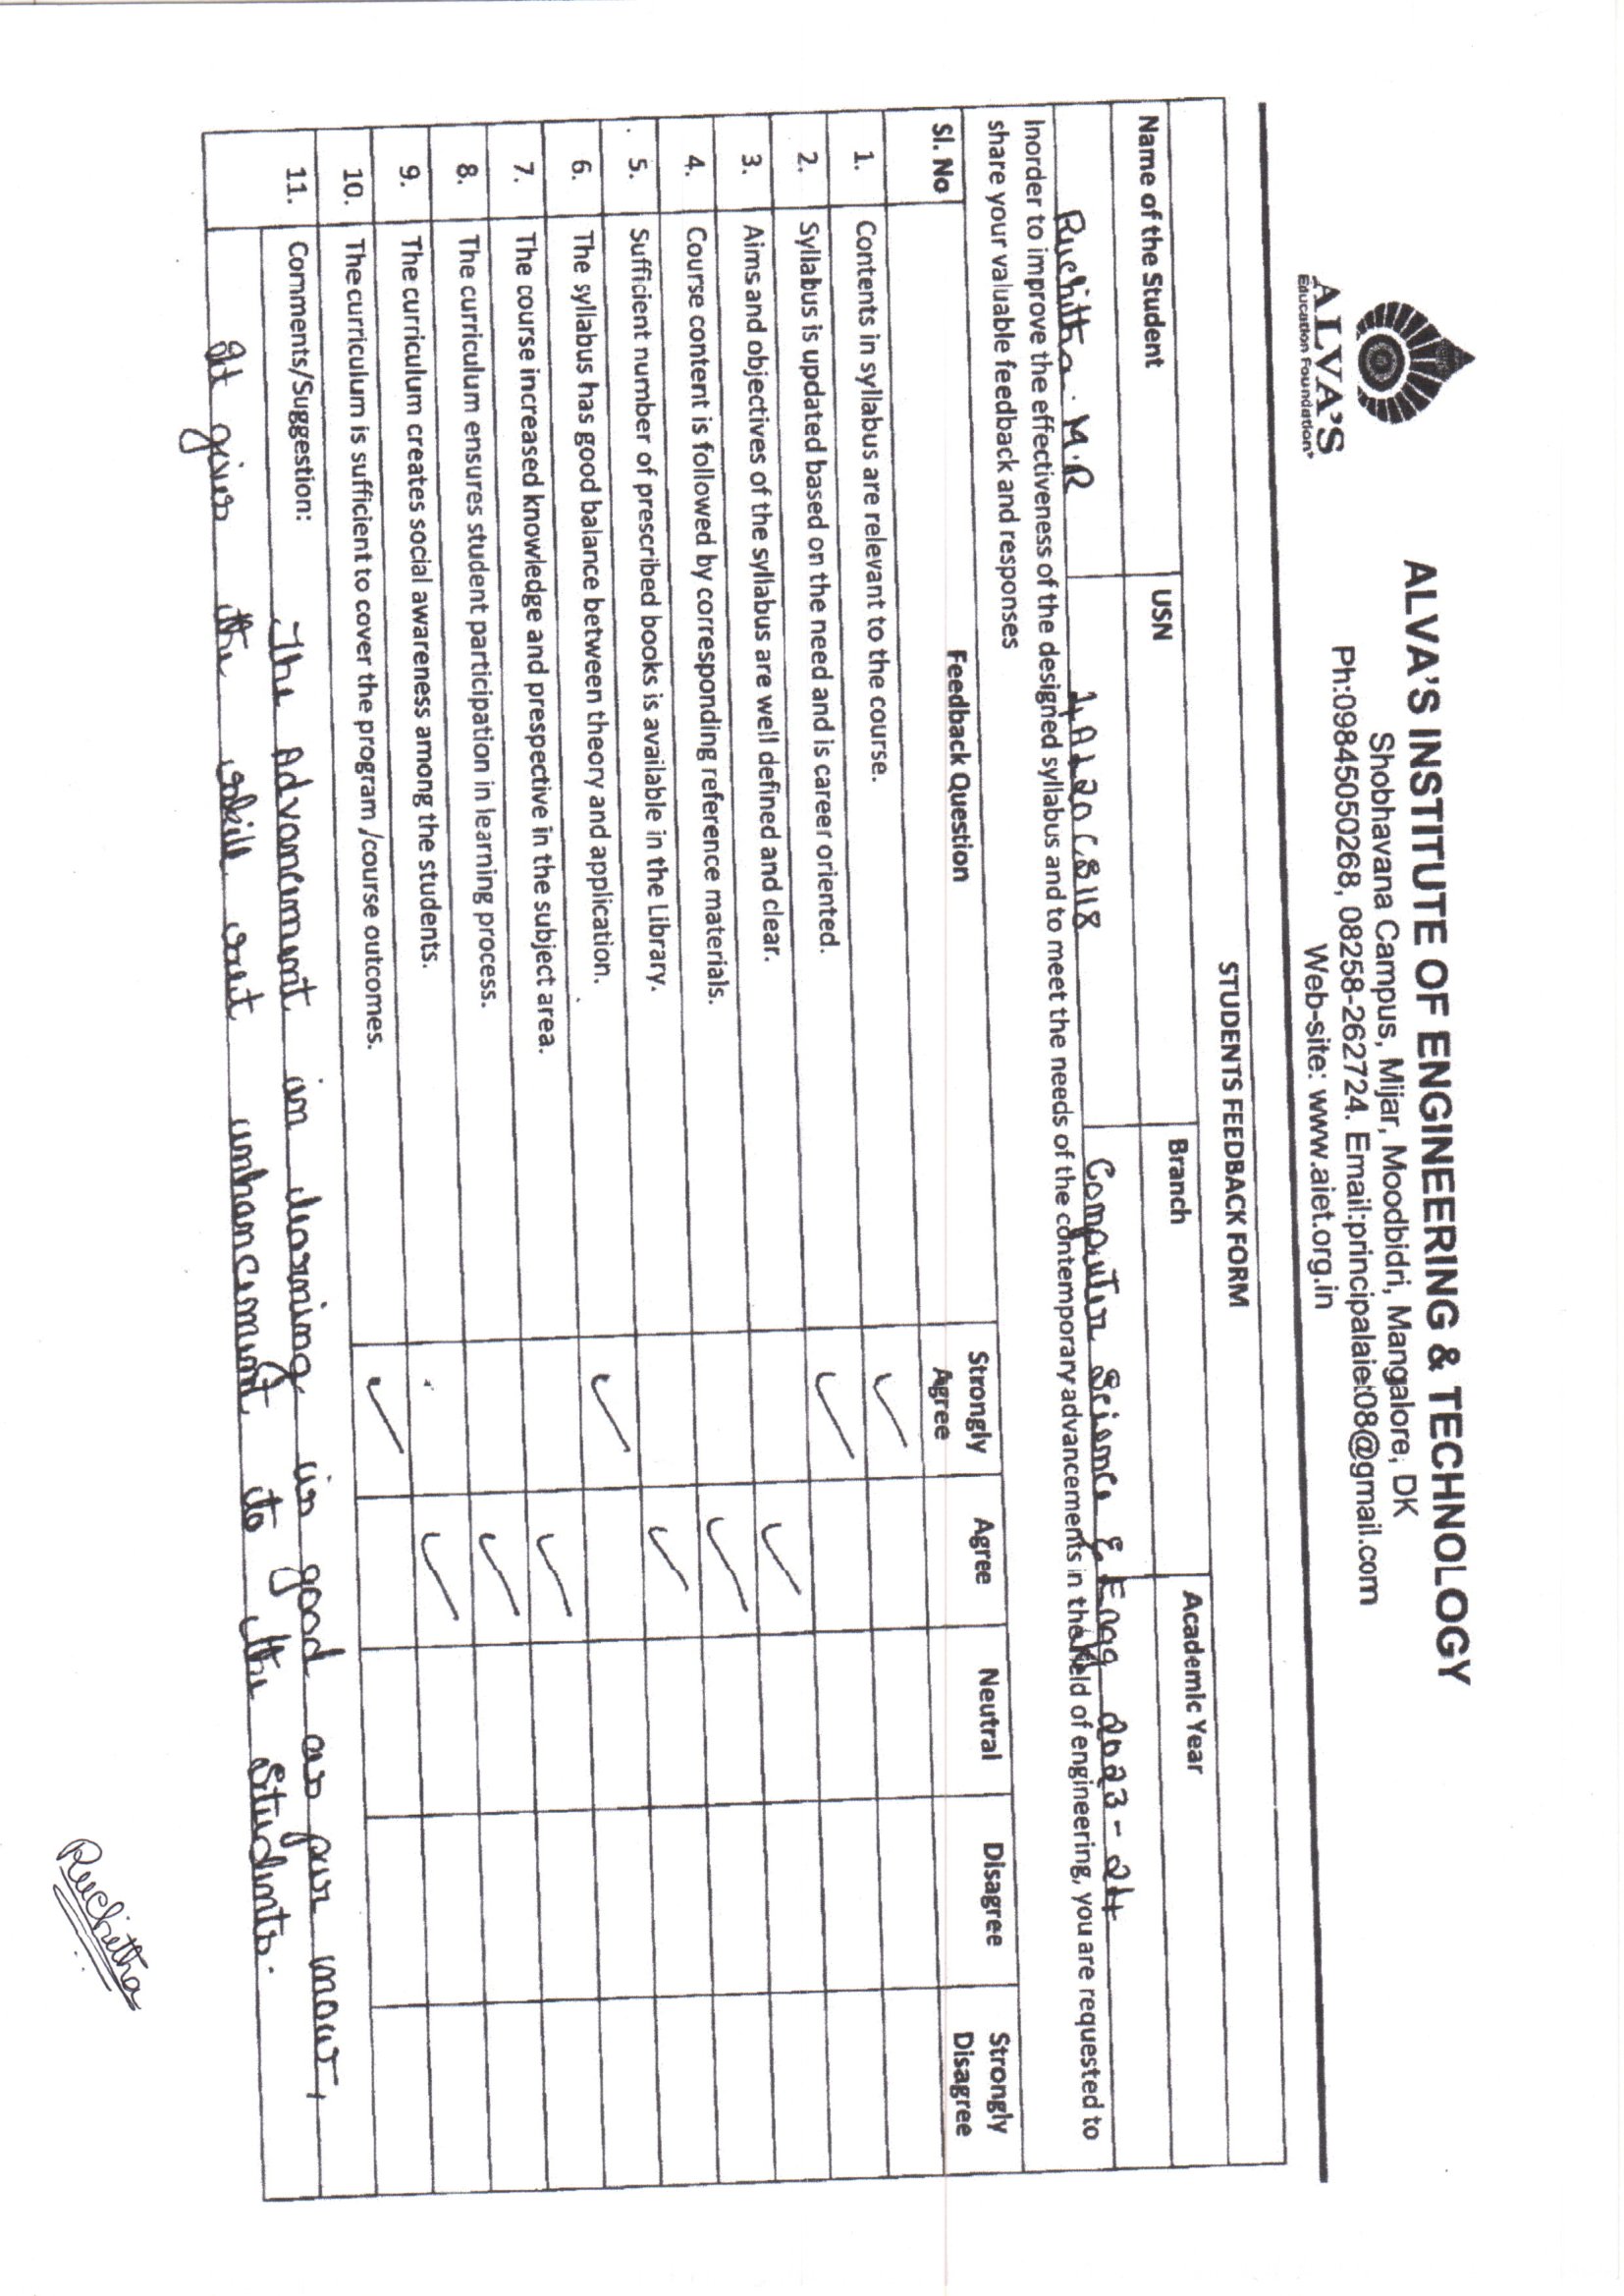 ALVA'S
Education Foundation®
ALVA'S INSTITUTE OF ENGINEERING & TECHNOLOGY
Shobhavana Campus, Mijar, Moodbidri, Mangalore, DK
Ph:09845050268, 08258-262724. Email:principalaiet08@gmail.com
Web-site: www.aiet.org.in
STUDENTS FEEDBACK FORM
Name of the Student USN Branch Academic Year
Ruchitha. M.R 4AL20CS118 Computer Science & Engg 2023-24
Inorder to improve the effectiveness of the designed syllabus and to meet the needs of the contemporary advancements in the field of engineering, you are requested to
share your valuable feedback and responses
Sl. No Feedback Question Strongly Agree Agree Neutral Disagree Strongly Disagree
1. Contents in syllabus are relevant to the course. ✓
2. Syllabus is updated based on the need and is career oriented. ✓
3. Aims and objectives of the syllabus are well defined and clear. ✓
4. Course content is followed by corresponding reference materials. ✓
5. Sufficient number of prescribed books is available in the Library. ✓
6. The syllabus has good balance between theory and application. ✓
7. The course increased knowledge and prespective in the subject area. ✓
8. The curriculum ensures student participation in learning process. ✓
9. The curriculum creates social awareness among the students. ✓
10. The curriculum is sufficient to cover the program /course outcomes. ✓
11. Comments/Suggestion: The Advancement in learning is good as per now,
It gives the skill enhancement to the students.
Ruchitha